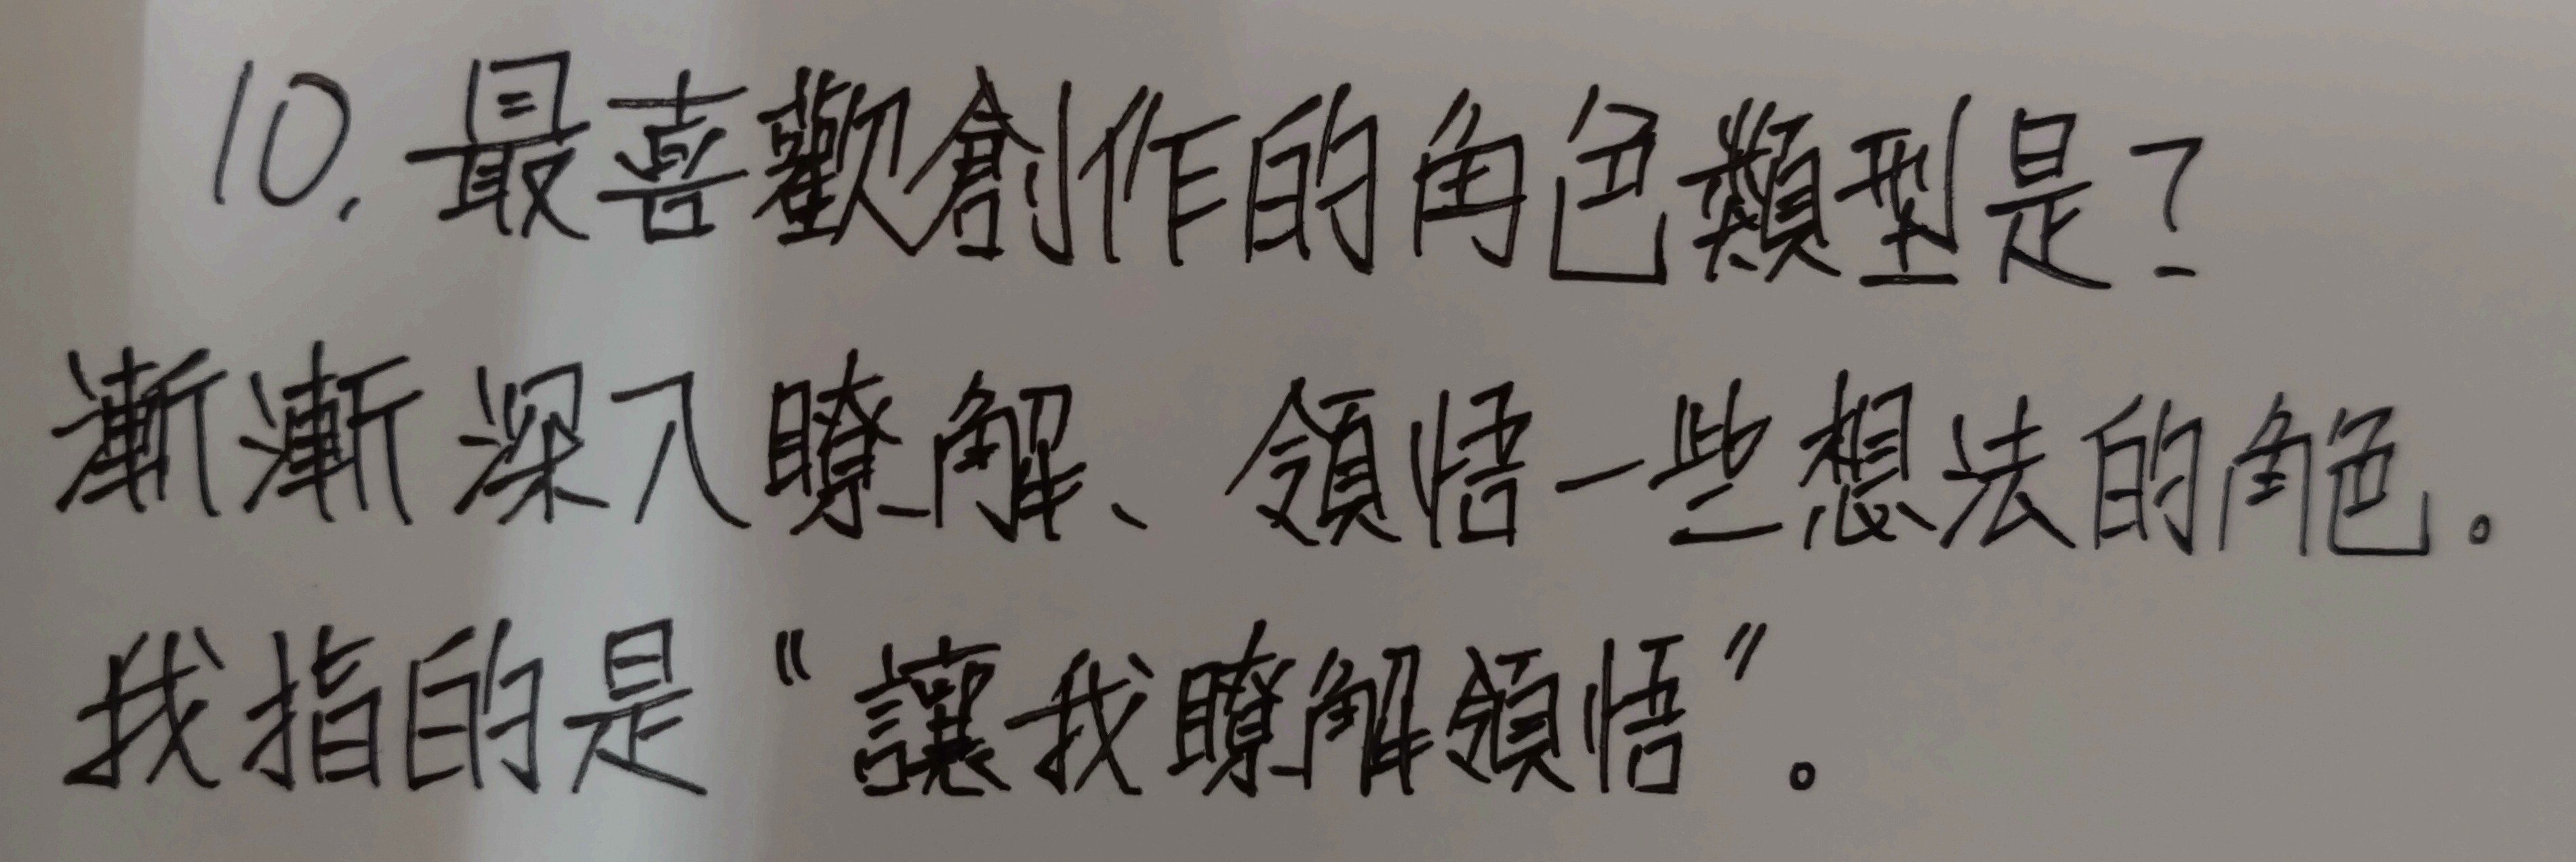 10. 最喜歡創作的角色類型是?
漸漸深入瞭解、領悟一些想法的角色。
我指的是“讓我瞭解領悟”。